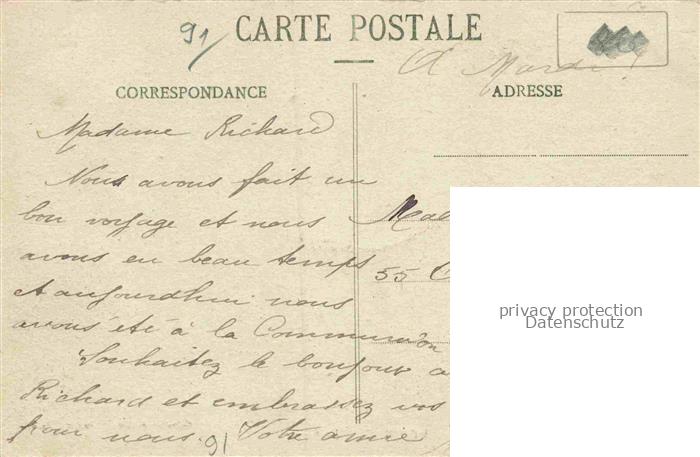 91/ CARTE POSTALE
A Mardi !
CORRESPONDANCE
ADRESSE
Madame Richard
Nous avons fait un
bon voyage et nous
avons eu beau temps
et aujourdhui nous
avons été à la Communion
Souhaitez le bonjour a
Richard et embrassez vos
pour nous. Votre amie
91
Mad
55 C
privacy protection
Datenschutz